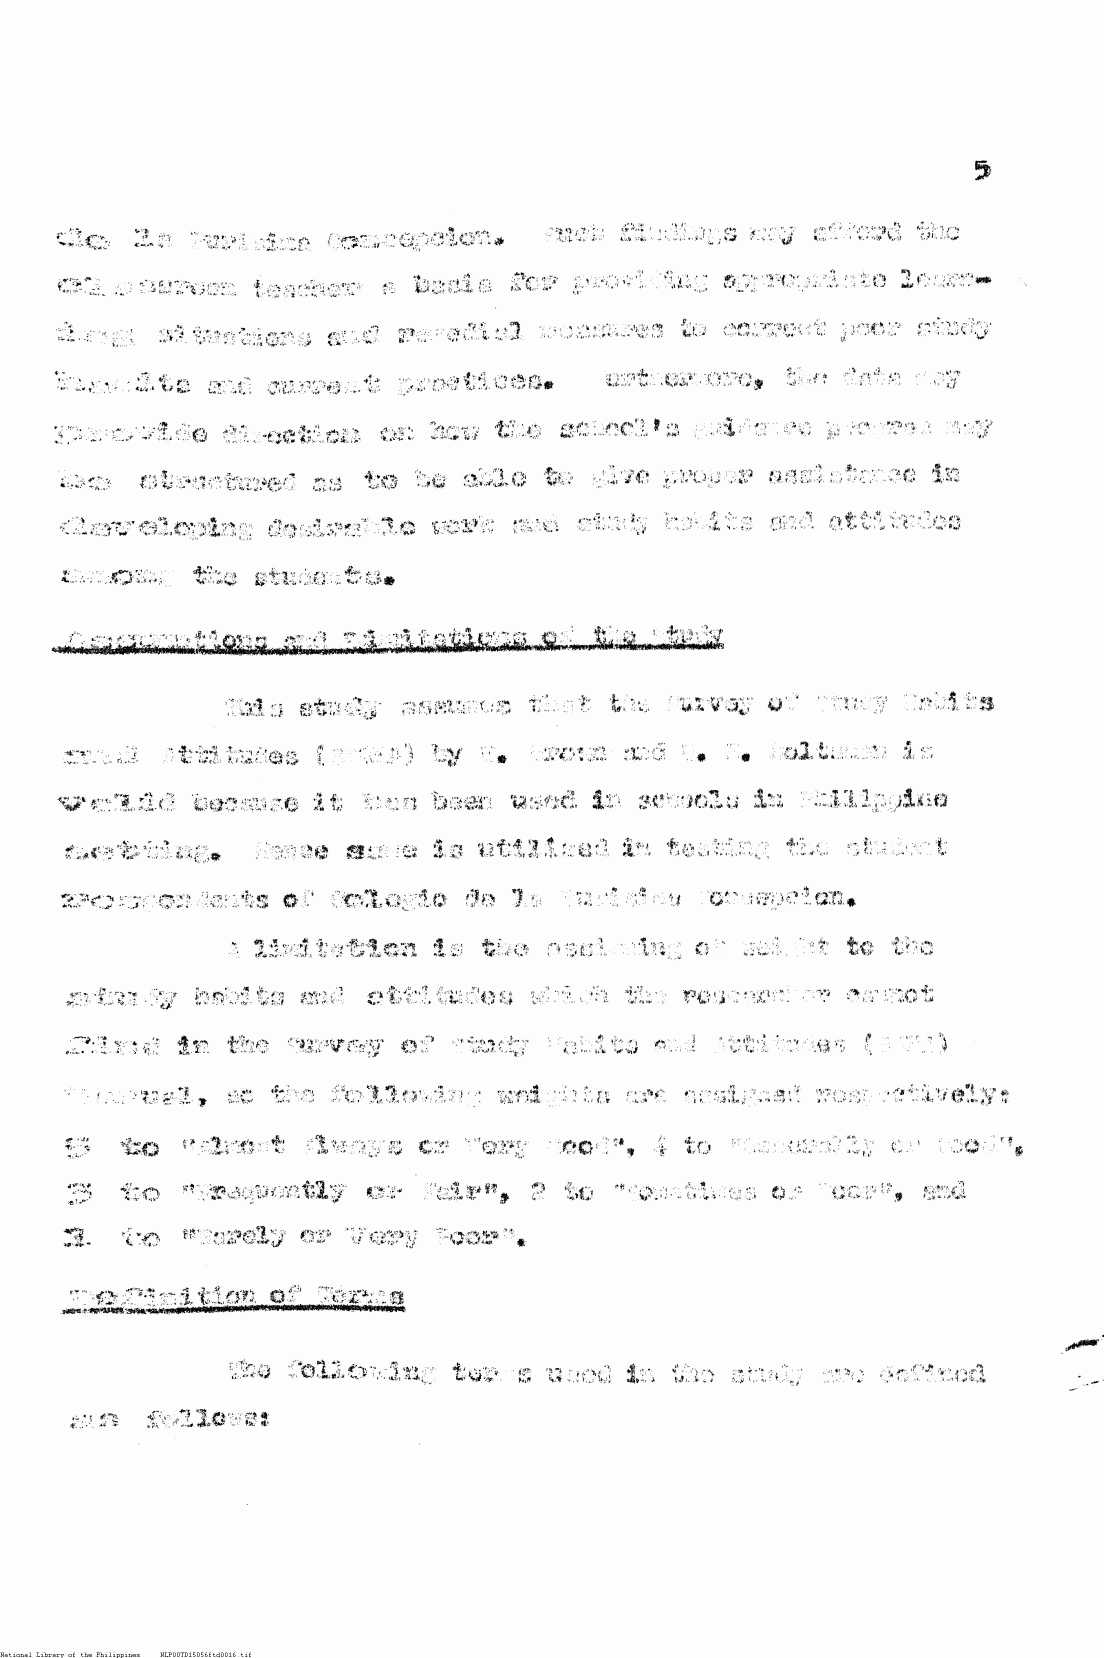 5
de la Purisima Concepcion. Such findings may afford the
classroom teacher a basis for providing appropriate learn-
ing situations and remedial measures to correct poor study
habits and current practices. Furthermore, the data may
provide direction on how the school's guidance program may
be structured as to be able to give proper assistance in
developing desirable work and study habits and attitudes
among the students.
Assumptions and Limitations of the Study
This study assumes that the Survey of Study Habits
and Attitudes (SSHA) by W. Brown and W. H. Holtzman is
valid because it has been used in schools in Philippine
setting. Hence same is utilized in testing the student
respondents of Colegio de la Purisima Concepcion.
A limitation is the assigning of weight to the
study habits and attitudes which the researcher cannot
find in the Survey of Study Habits and Attitudes (SSHA)
Manual, so the following weights are assigned respectively:
5 to "Almost Always or Very Good", 4 to "Generally or Good",
3 to "Frequently or Fair", 2 to "Sometimes or Poor", and
1 to "Rarely or Very Poor".
Definition of Terms
The following terms used in the study are defined
as follows:
National Library of the Philippines NLP00TD15056ftd0016.tif